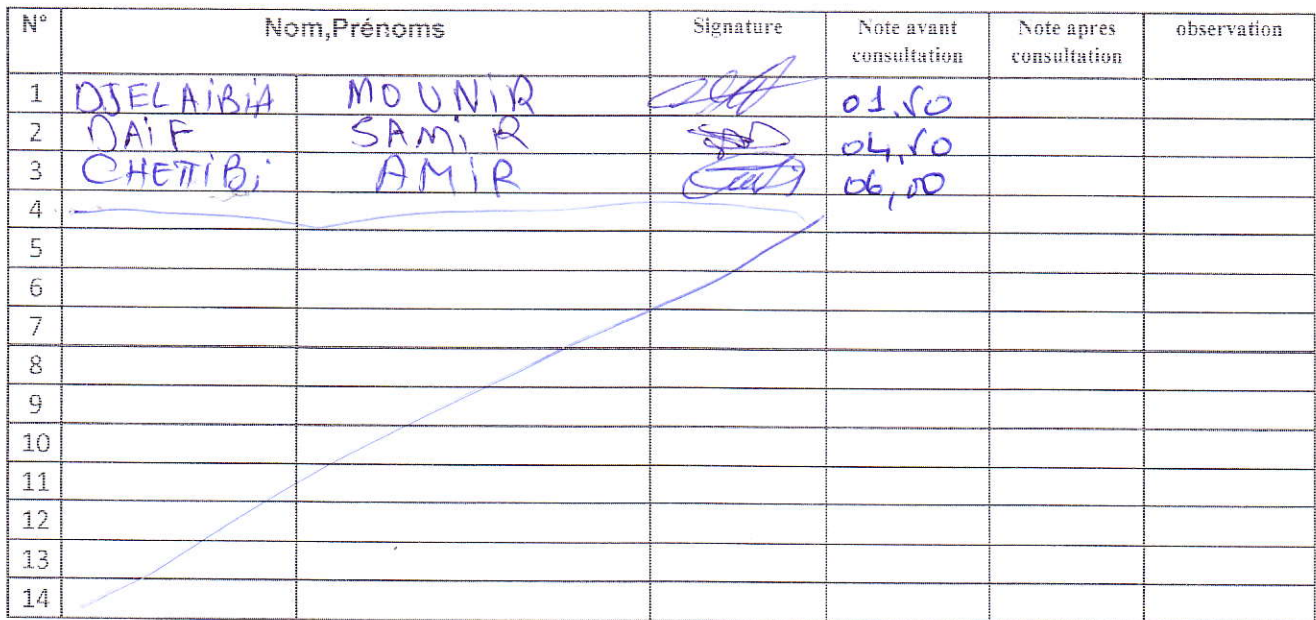 N° Nom,Prénoms Signature Note avant consultation Note apres consultation observation
1 DJELAIBIA MOUNIR 01,50
2 DAIF SAMIR 04,50
3 CHETTIBI AMIR 06,00
4
5
6
7
8
9
10
11
12
13
14